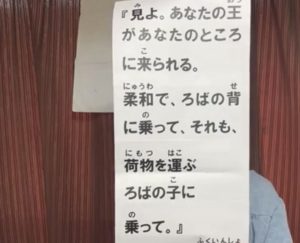 『見よ。あなたの王
があなたのところ
に来られる。
柔和で、ろばの背
に乗って、それも、
荷物を運ぶ
ろばの子に
乗って。』
ふくいんしょ